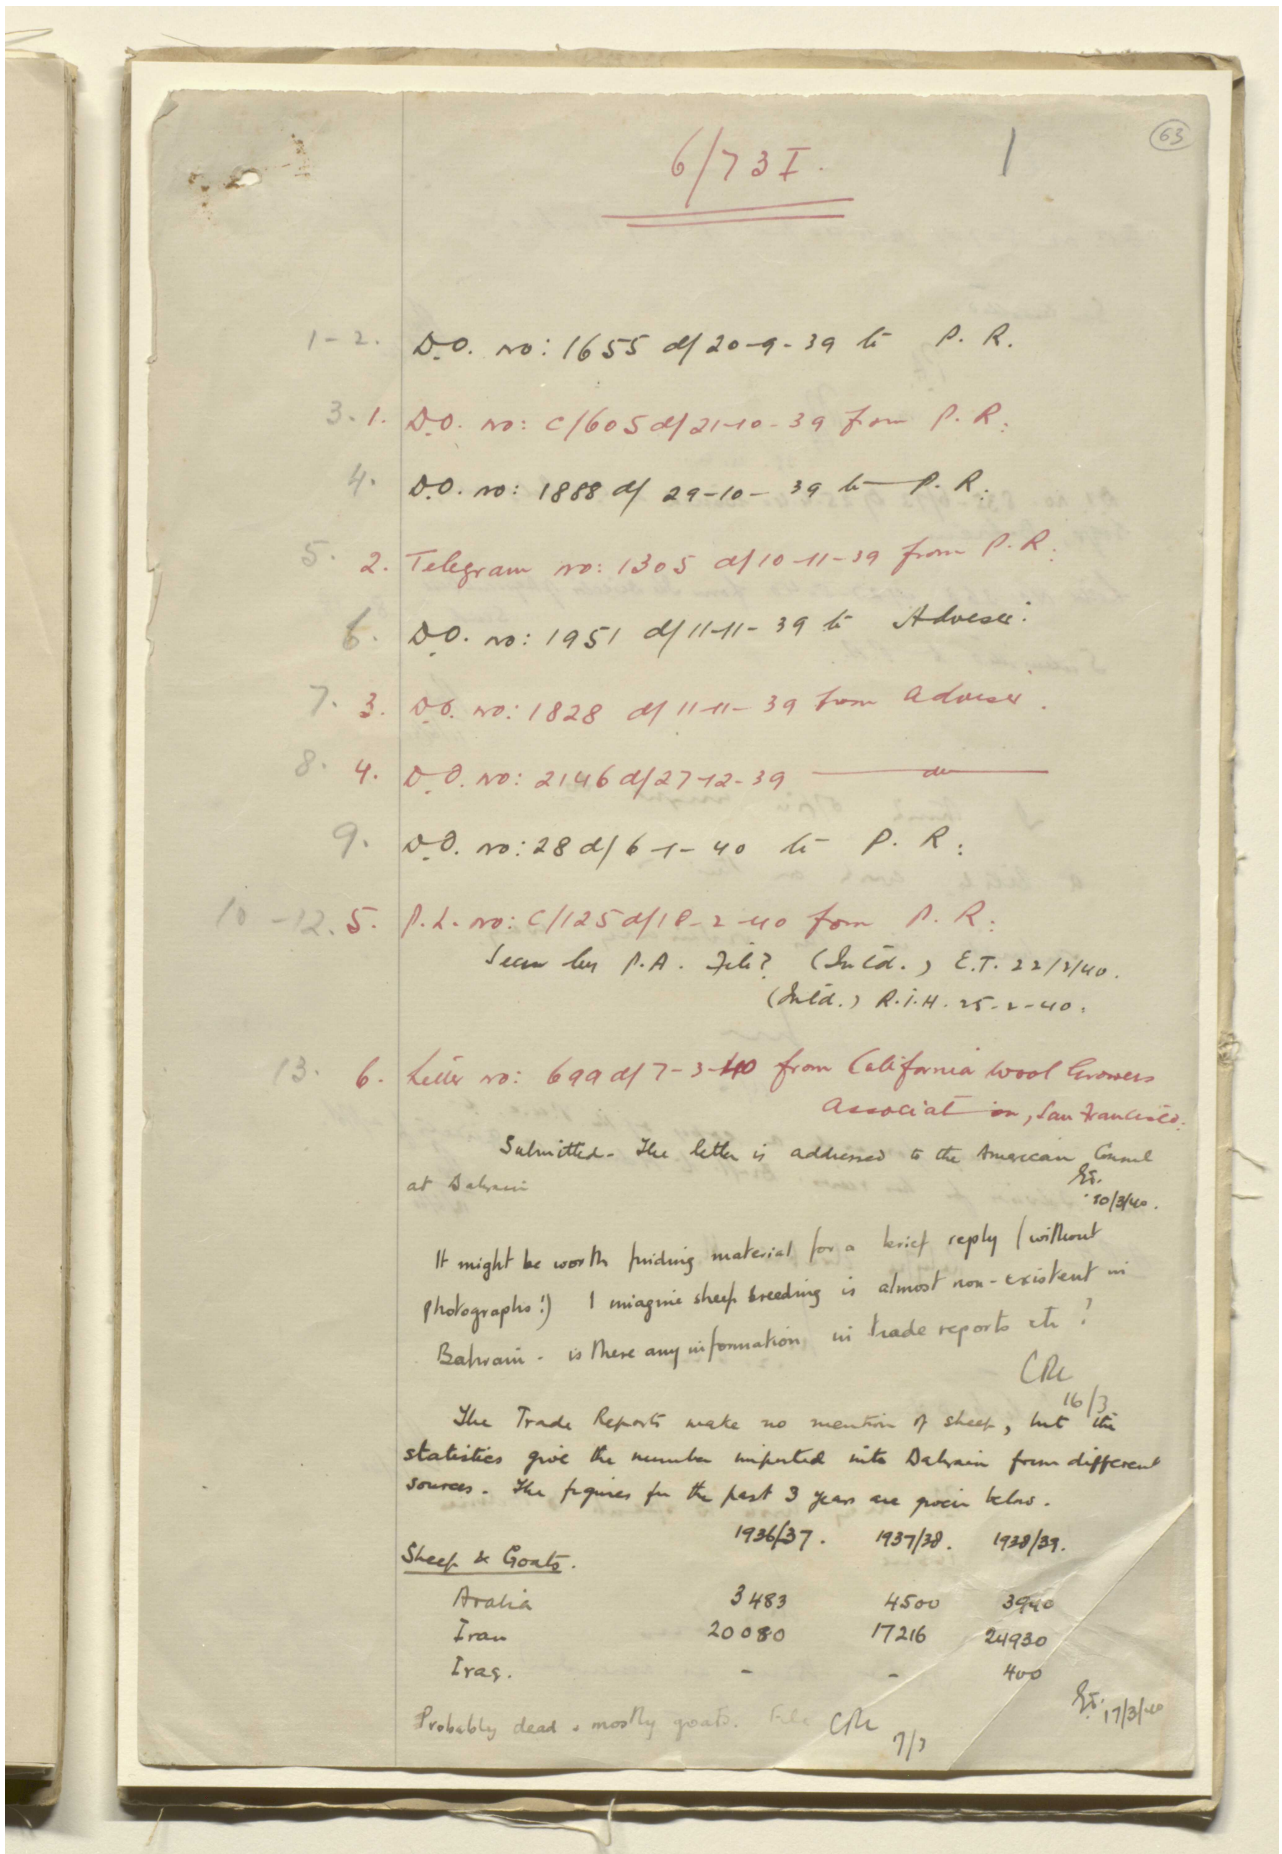 63
6/73 I.
1
1-2. D.O. no: 1655 d/ 20-9-39 to P. R.
3. 1. D.O. no: C/605 d/ 21-10-39 from P. R:
4. D.O. no: 1888 d/ 29-10-39 to P. R:
5. 2. Telegram no: 1305 d/ 10-11-39 from P. R:
6. D.O. no: 1951 d/ 11-11-39 to Adviser.
7. 3. D.O. no: 1828 d/ 11-11-39 from Adviser.
8. 4. D.O. no: 2146 d/ 27-12-39 — do —
9. D.O. no: 28 d/ 6-1-40 to P. R:
10-12. 5. P.L. no: C/125 d/ 18-2-40 from P. R:
Seen by P.A. File? (Intd.) E.T. 22/2/40.
(Intd.) R.I.H. 25-2-40.
13. 6. Letter no: 699 d/ 7-3-40 from California Wool Growers
Association, San Francisco.
Submitted. The letter is addressed to the American Consul
at Bahrain
10/3/40.
It might be worth finding material for a brief reply (without
photographs!) I imagine sheep breeding is almost non-existent in
Bahrain - is there any information in trade reports etc?
16/3
The Trade Reports make no mention of sheep, but the
statistics give the number imported into Bahrain from different
sources. The figures for the past 3 years are given below.
1936/37. 1937/38. 1938/39.
Sheep & Goats.
Arabia 3483 4500 3940
Iran 20080 17216 24930
Iraq. - - 400
17/3/40
Probably dead & mostly goats. File